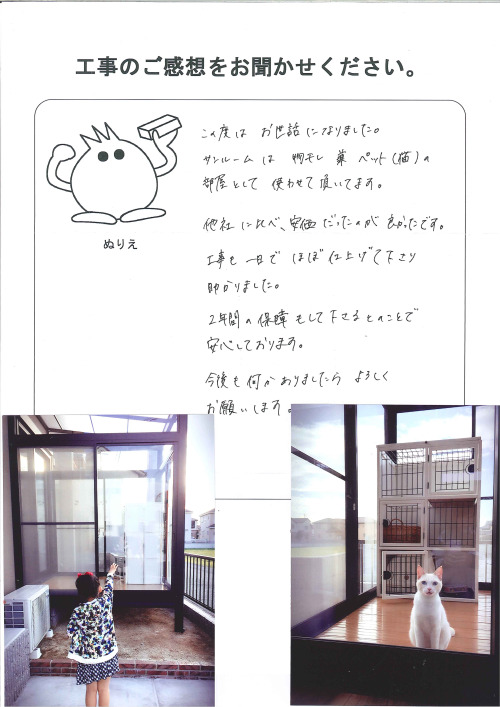 工事のご感想をお聞かせください。
この度は お世話になりました。
サンルームは 物干し 兼 ペット(猫)の
部屋として 使わせて頂いてます。
ぬりえ
他社に比べ、安価だったのが良かったです。
工事も 一日で ほぼ仕上げて下さり
助かりました。
2年間の保障もして下さるとのことで
安心しております。
今後も何かありましたら よろしく
お願いします。